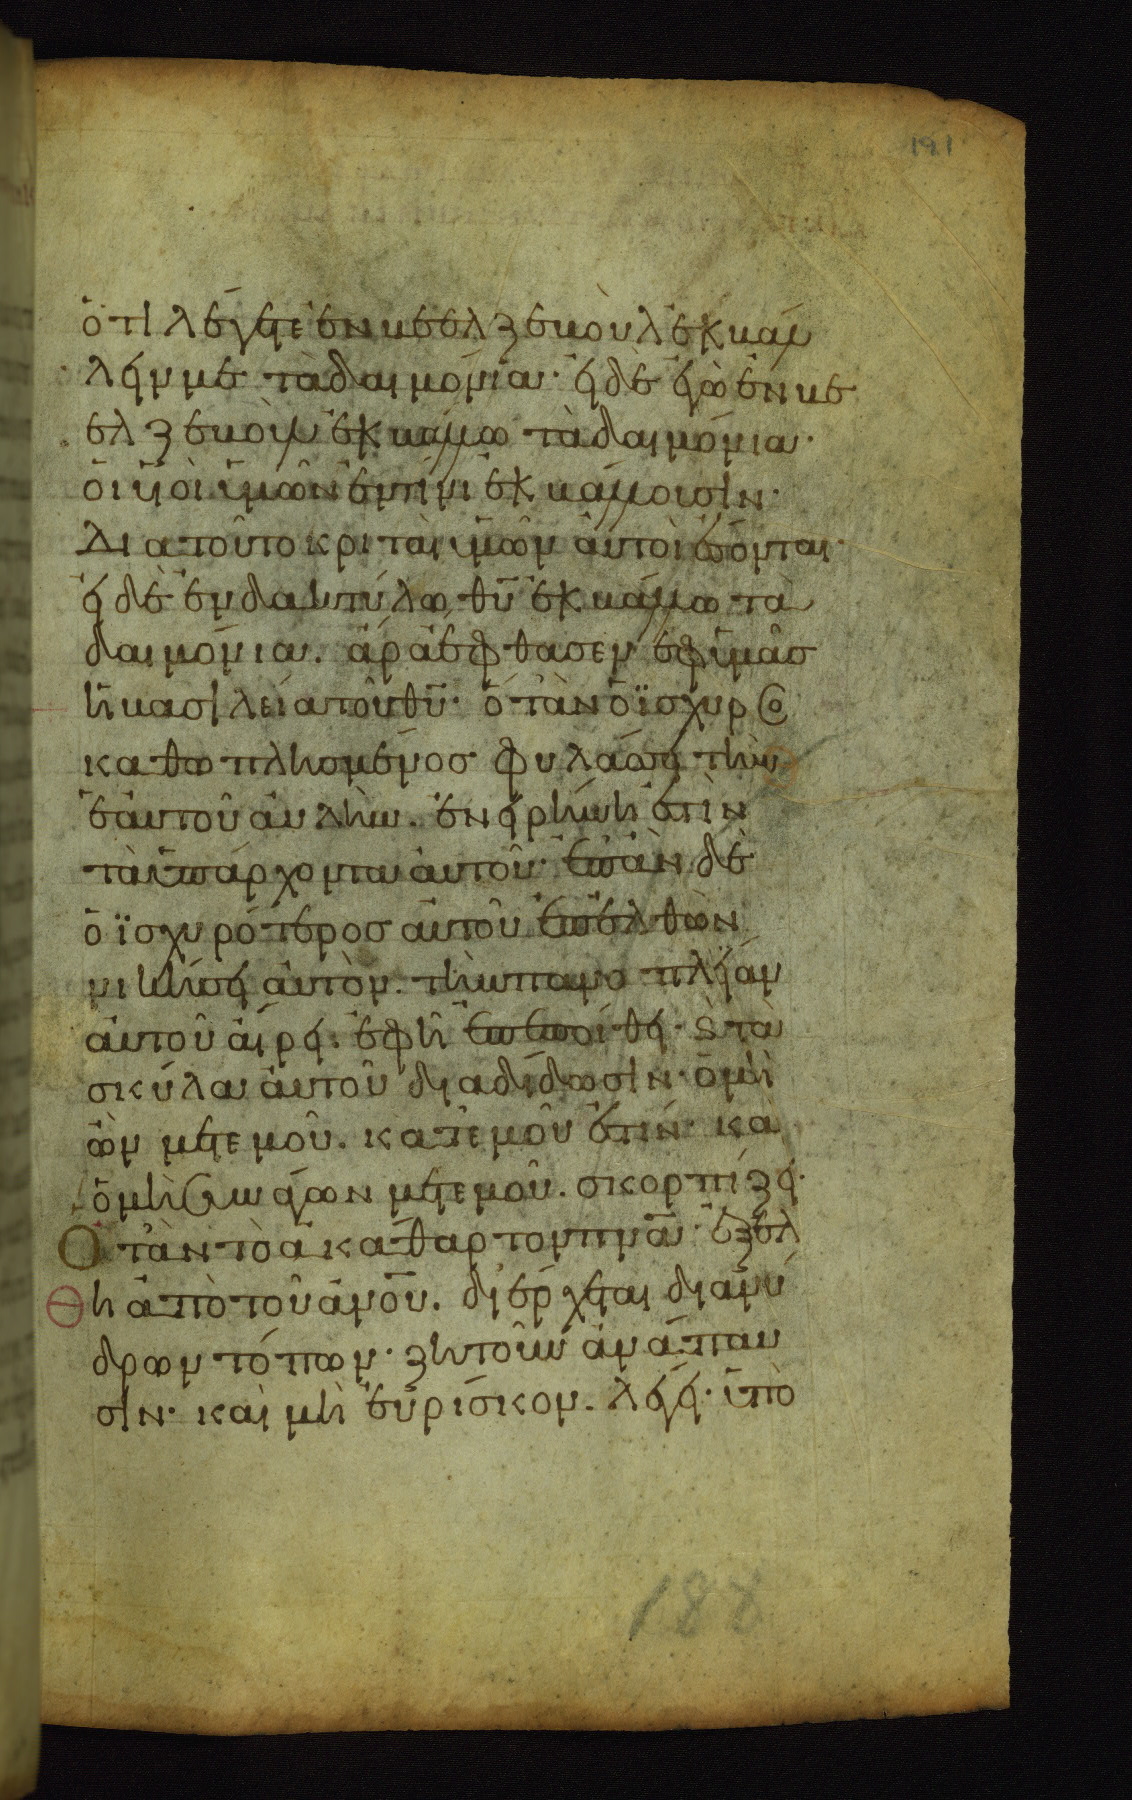 ὅτι λέγεται ἐν βεελζεβοὺλ ἐκβάλ
λειν με τὰ δαιμόνια· εἰ δὲ ἐγὼ ἐν βε
ελζεβοὺλ ἐκβάλλω τὰ δαιμόνια·
οἱ υἱοὶ ὑμῶν ἐν τίνι ἐκβάλλουσιν·
Διατοῦτο κριταὶ ὑμῶν αὐτοὶ ἔσονται·
εἰ δὲ ἐν δακτύλω θ̅υ̅ ἐκβάλλω τὰ
δαιμόνια. ἄρα ἔφθασεν ἐφ ὑμᾶς
ἡ βασιλεία τοῦ θ̅υ̅· ὅτὰν ὁ ϊσχυρος
καθωπλησμένος φυλάσσει τὴν
ἑαυτοῦ αὐλὴν. ἐν εἰρήνη ἐστὶν
τὰ ὑπάρχοντα αὐτοῦ· ἐπὰν δὲ
ὁ ϊσχυρότερος αὐτοῦ ἐπελθὼν
νικήσει αὐτὸν. τὴν πανοπλείαν
αὐτοῦ αἴρει. ἐφ ἧ ἐπεποίθει· ϗ τὰ
σκύλα αὐτοῦ διαδίδωσιν· ὁ μὴ
ὢν μετεμοῦ. κατεμοῦ ἐστίν· καὶ
ὁ μὴ συνάγων μετεμοῦ. σκορπίζει·
Ὅτὰν τὸ ἀκάθαρτον π̅ν̅α̅· ἐξέλ
Θη ἀπὸ τοῦ α̅ν̅ο̅υ̅. διέρχεται διανύ
δρων τόπων· ζητοῦν ἀνάπαυ
σιν· καὶ μὴ εὑρίσκον. λέγει· ὑπὸ
191
188